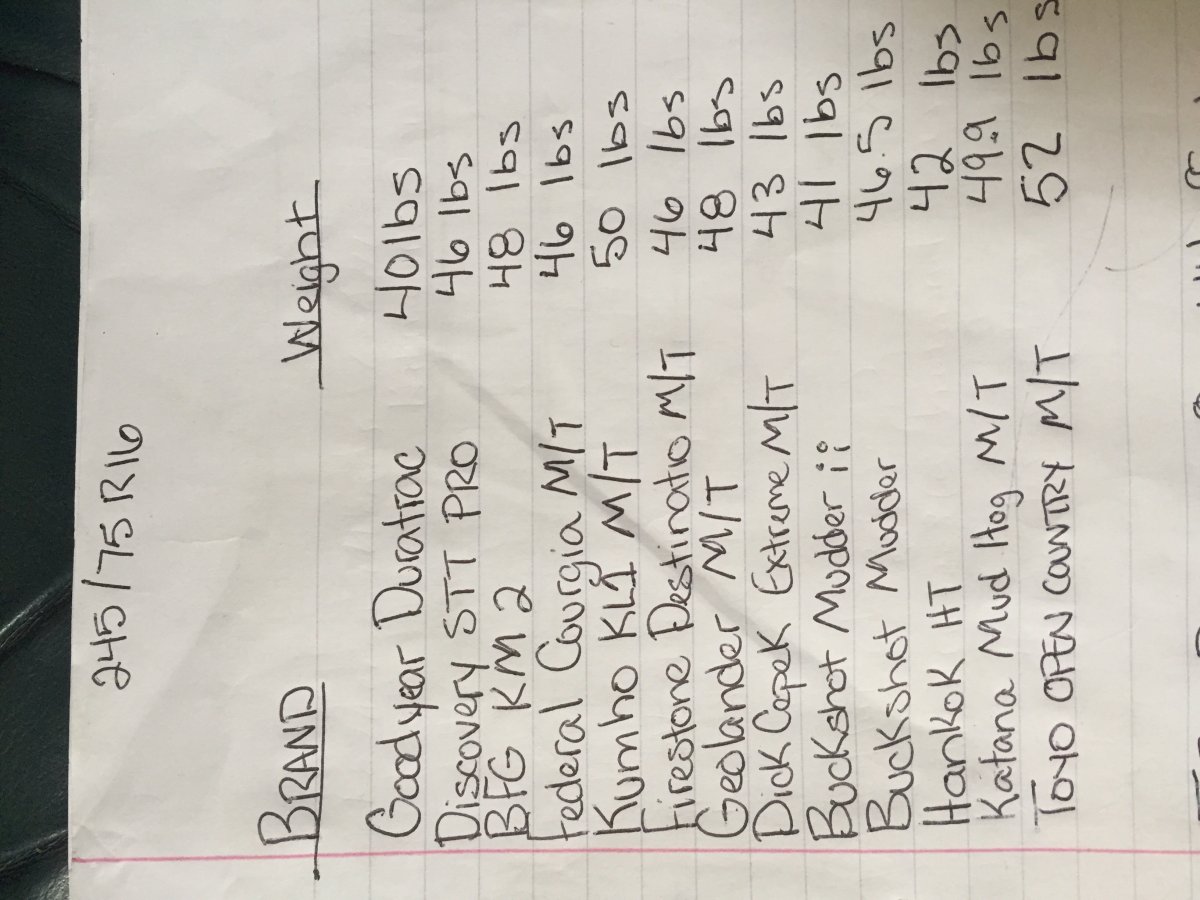 245/75 R16
BRAND Weight
Goodyear Duratrac 40 lbs
Discovery STT PRO 46 lbs
BFG KM2 48 lbs
Federal Courgia M/T 46 lbs
Kumho KL1 M/T 50 lbs
Firestone Destinatio M/T 46 lbs
Geolander M/T 48 lbs
Dick Cepek Extreme M/T 43 lbs
Buckshot Mudder ii 41 lbs
Buckshot Mudder 46.5 lbs
Hankok HT 42 lbs
Katana Mud Hog M/T 49.9 lbs
TOYO OPEN COUNTRY M/T 52 lbs